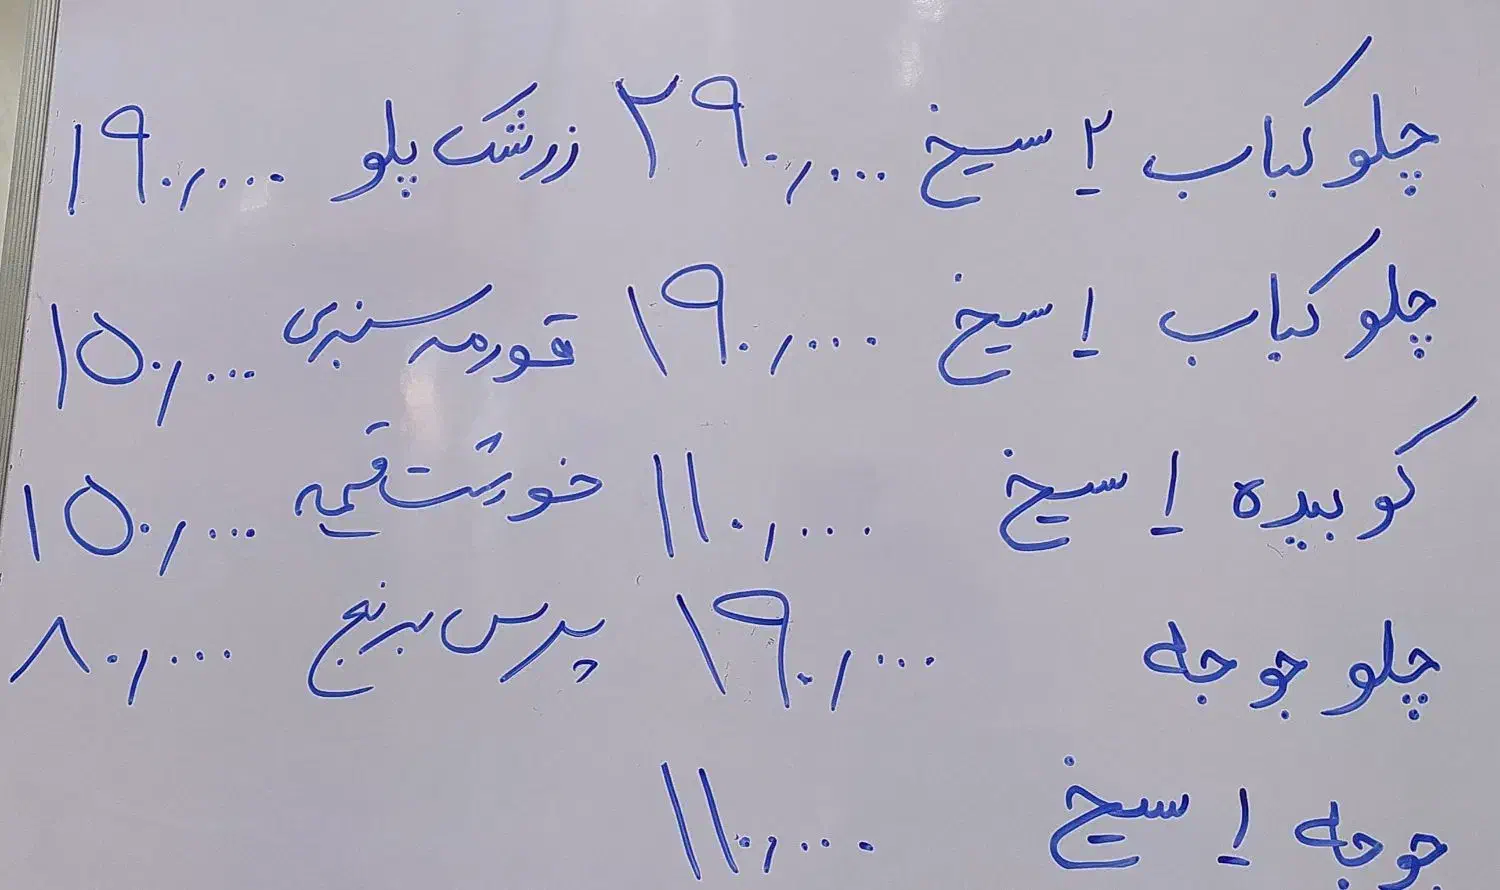 چلو کباب ۲ سیخ ۲۹۰/۰۰۰
چلو کباب ۱ سیخ ۱۹۰/۰۰۰
کوبیده ۱ سیخ ۱۱۰/۰۰۰
چلو جوجه ۱۹۰/۰۰۰
جوجه ۱ سیخ ۱۱۰/۰۰۰
زرشک پلو ۱۹۰/۰۰۰
قورمه سبزی ۱۵۰/۰۰۰
خورشت قیمه ۱۵۰/۰۰۰
پرس برنج ۸۰/۰۰۰